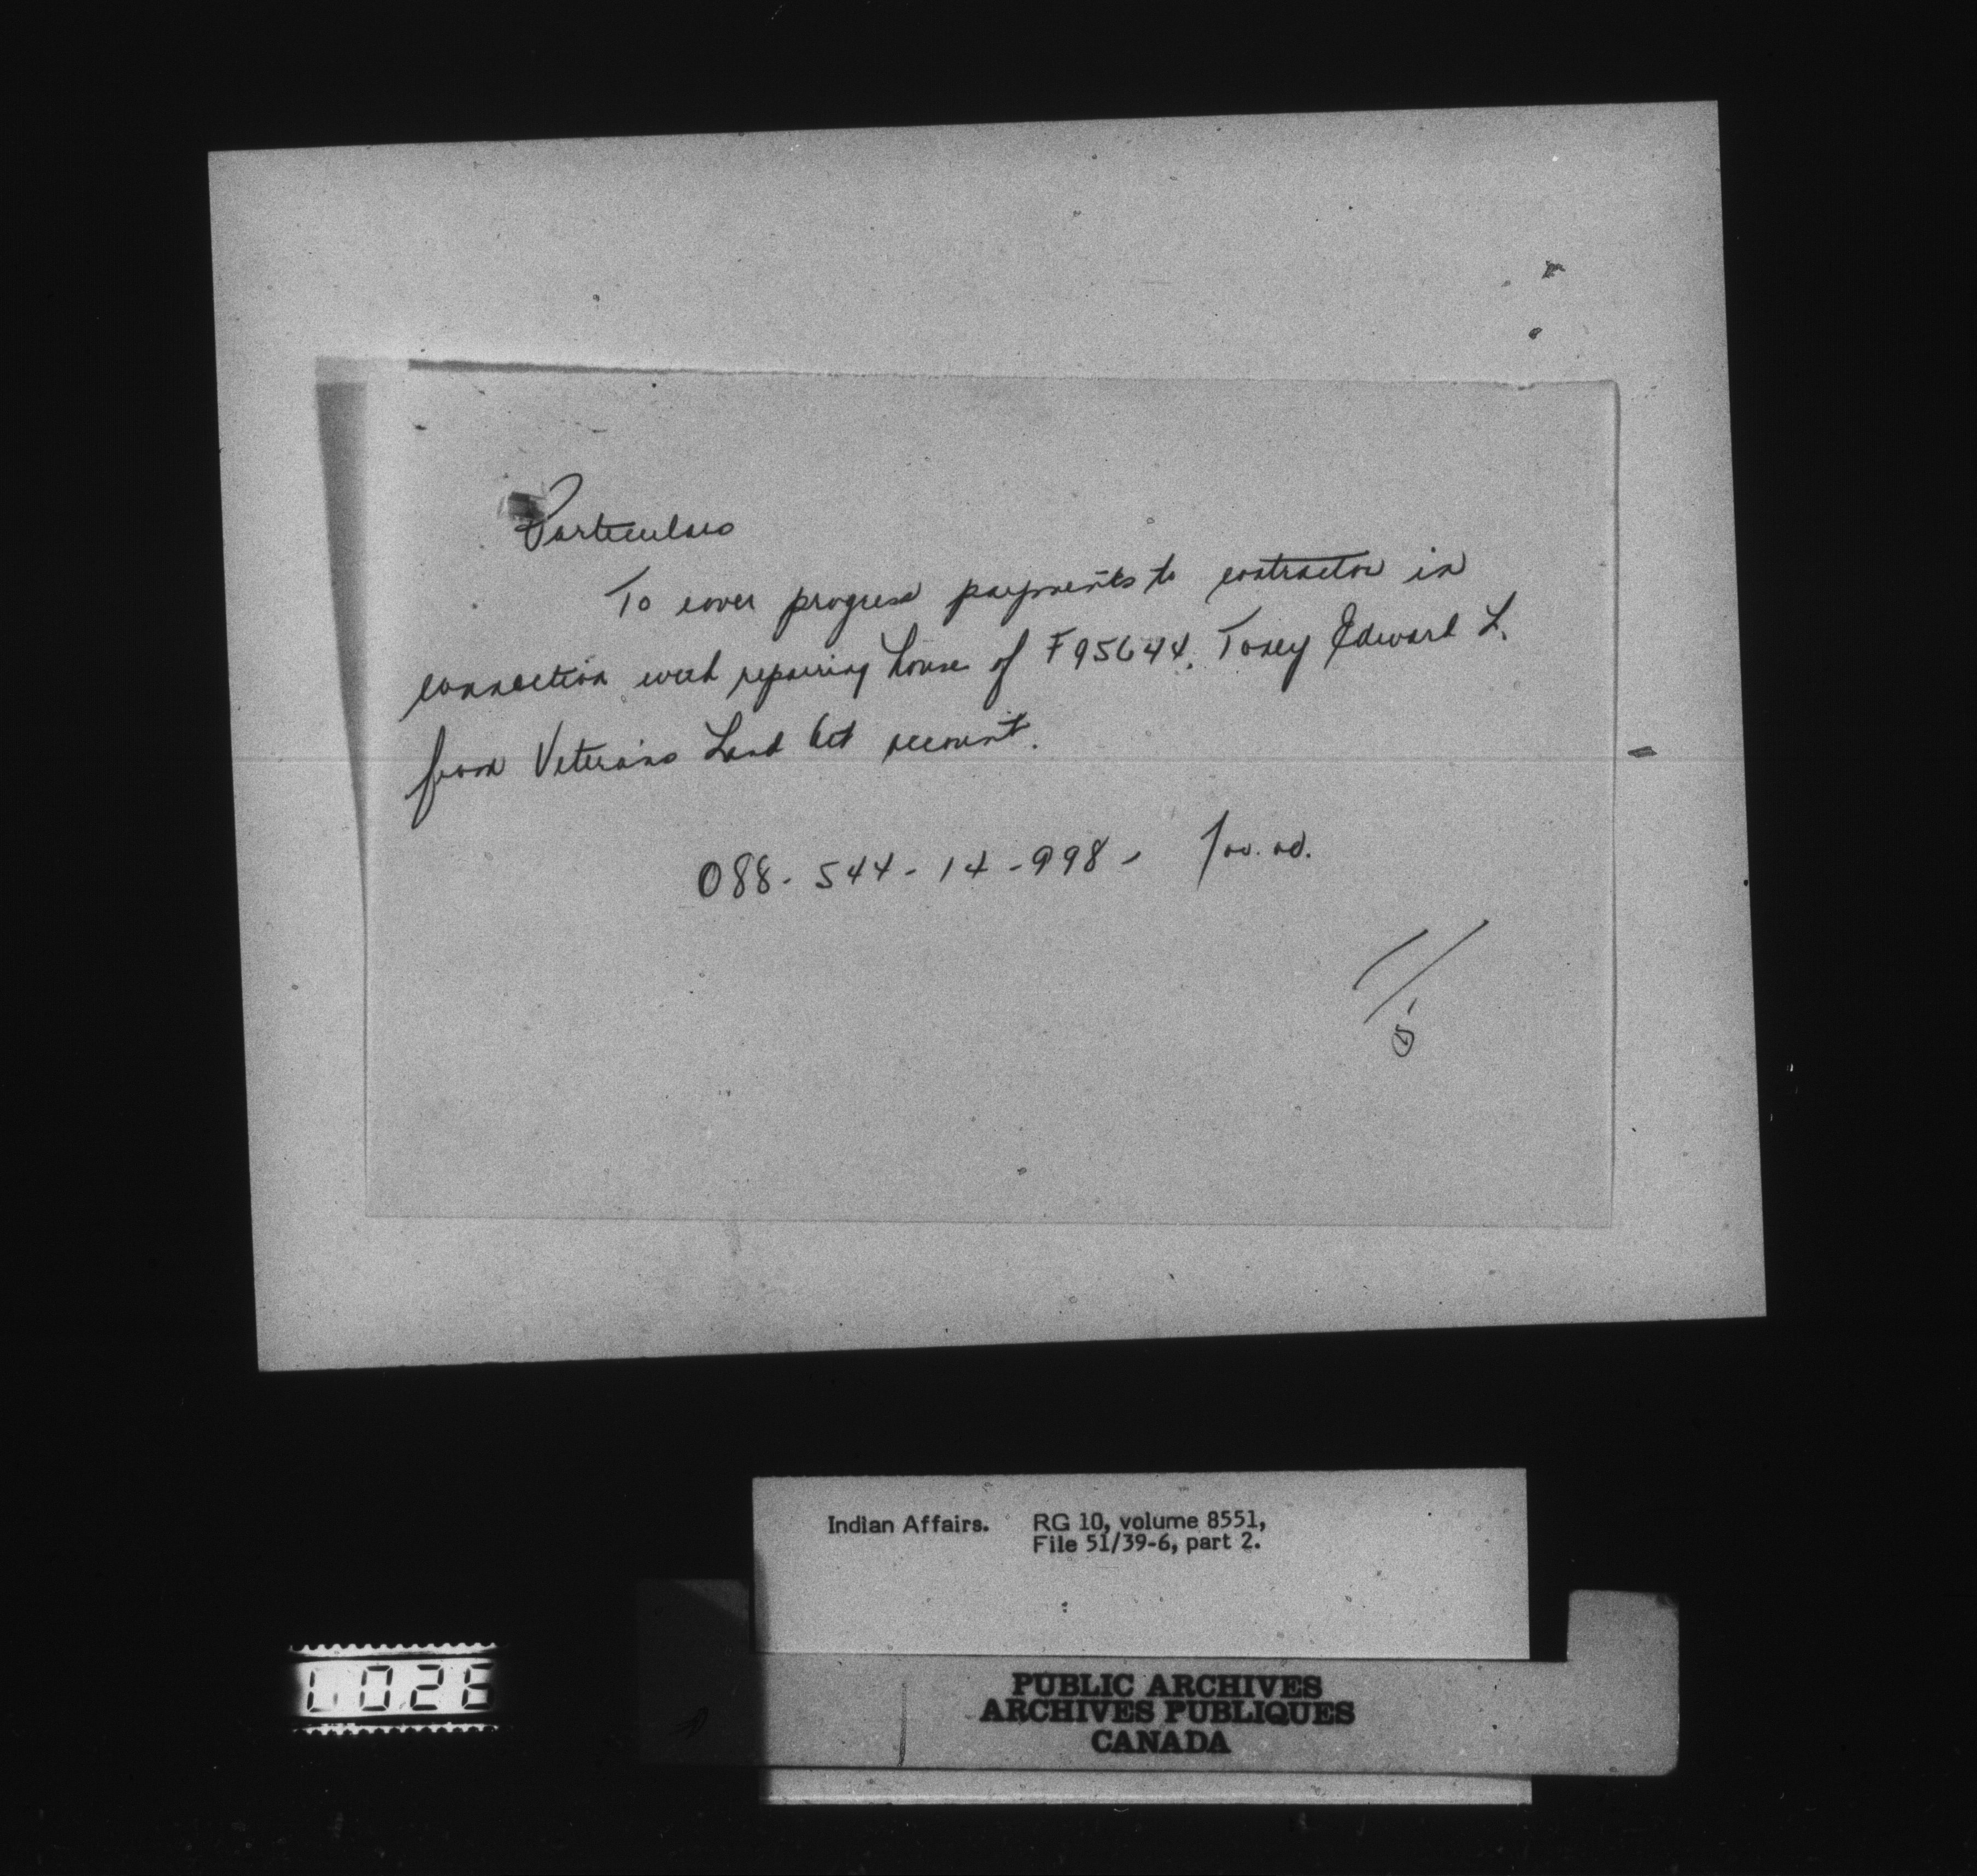 Particulars
To cover progress payments to contractor in
connection with repairing house of F95644. Toney Edward L.
from Veterans Land Act account.
088-544-14-998-
5
Indian Affairs. RG 10, volume 8551,
File 51/39-6, part 2.
PUBLIC ARCHIVES
ARCHIVES PUBLIQUES
CANADA
026